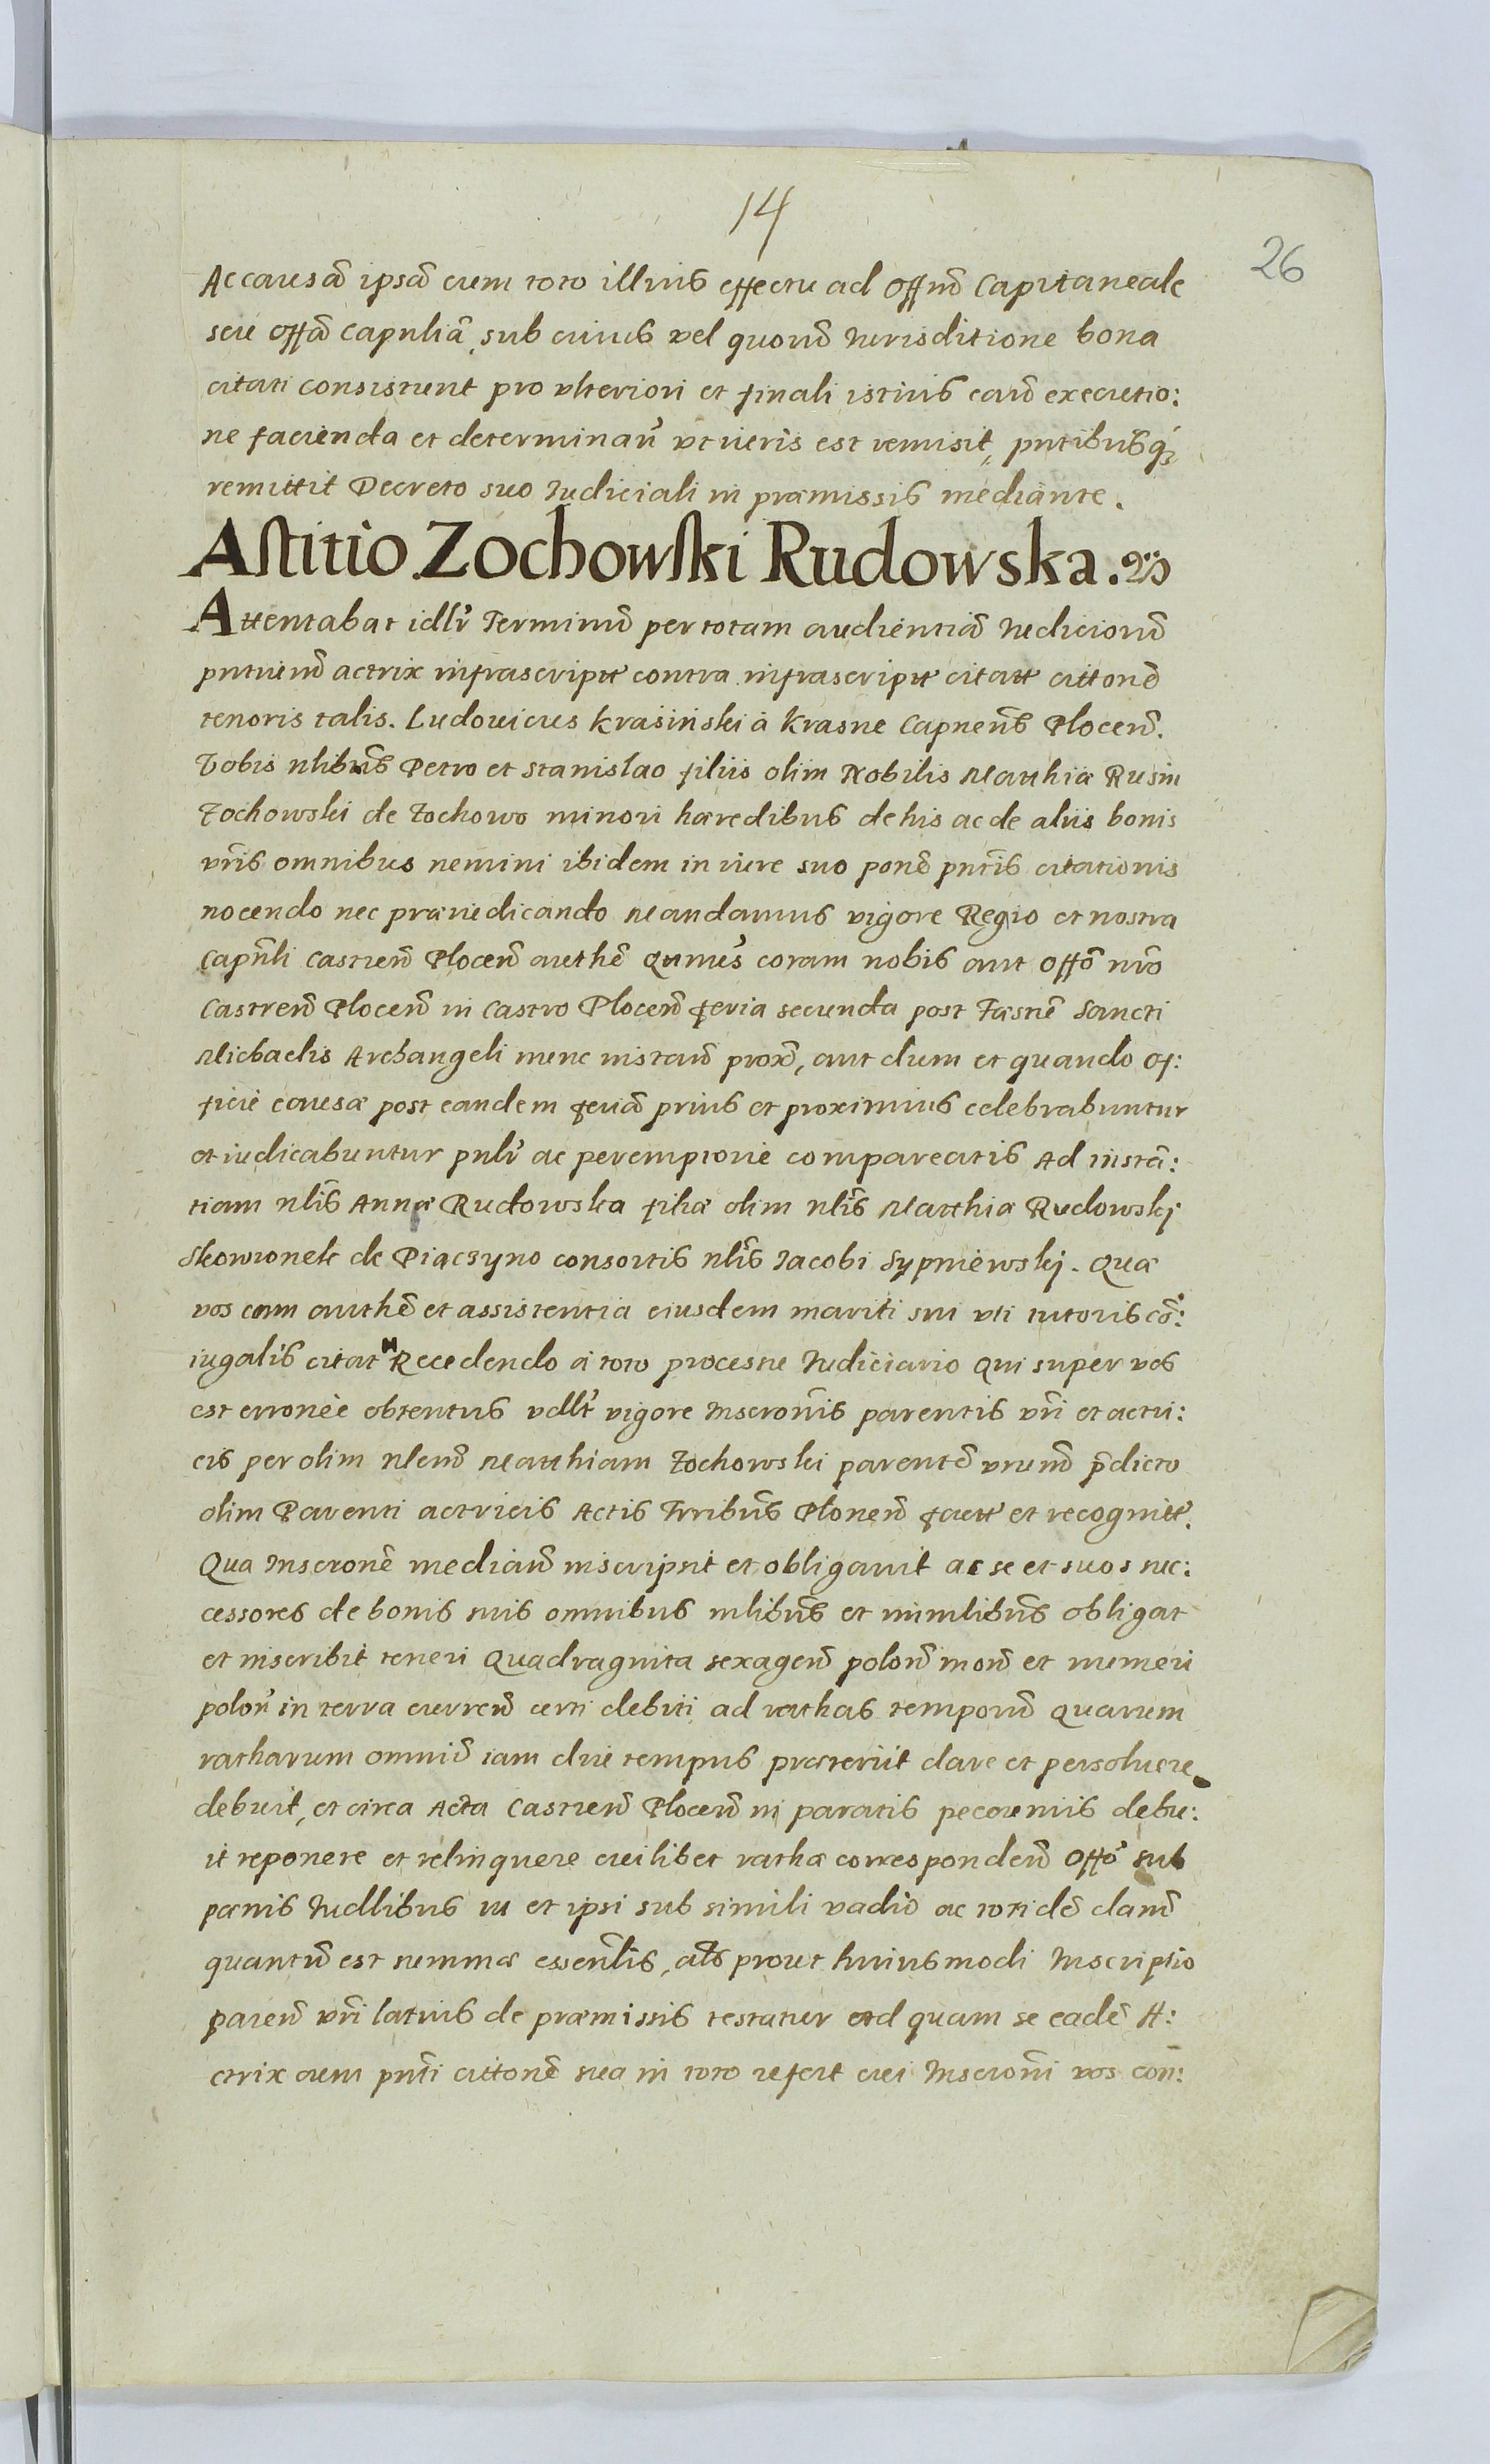 14
26
Ac causã ipsã cum toto illius effectu ad Offiũ Capitaneale
seu Offã Capnliã, sub cuius vel quorũ Iurisditione bona
citati consistunt pro vlteriori et finali istius caũ executio:
ne facienda et determinañ vt iuris est remisit, pntibusq́;
remittit Decreto suo Iudiciali in præmissis mediante.
Astitio Zochowski Rudowska.
Attentabat idlr̃ Terminũ per totam audientiã Iudiciorũ
pntiuũ actrix infrascriptt contra infrascriptt citatt cittonẽ
tenoris talis. Ludouicus Krasiński à Krasne Capneñs Plocen̄.
Vobis nlibũs Petro et Stanislao filiis olim Nobilis Matthiæ Rusin
Zochowski de Zochowo minori hæredibus de his ac de aliis bonis
vr̃is omnibus nemini ibidem in iure suo ponẽ pñtis citationis
nocendo nec præiudicando Mandamus vigore Regio et nostra
Capñli Castren̄ Plocen̄ authẽ Qtnus coram nobis aut Offõ nr̃o
Castren̄ Plocen̄ in Castro Plocen̄ feria secunda post Fæstũ Sancti
Michaelis Archangeli nunc instan̄ prox̄, aut dum et quando Of:
ficii causæ post eandem feriã prius et proximius celebrabuntur
et iudicabuntur pnlr̃ ac peremptorie compareatis Ad instã:
tiam nlĩs Annæ Rudowska filiæ olim nlĩs Matthiæ Rudowskj
Skowronek de Piączyno consortis nlĩs Iacobi Sypniewskj. Quæ
vos cum authẽ et assistentia eiusdem mariti sui vti tutoris cõ:
iugalis citat Recedendo a toto processu Iudiciario qui super vos
est erroneè obtentus vdlt̃ vigore Inscronĩs parentis vr̃i et actri:
cis per olim nlem̄ Matthiam Zochowski parentẽ vrum̄ p̄dicto
olim Parenti actricis Actis Trribũs Plonen̄ factt et recognitt.
Qua Inscronẽ median̄ inscripsit et obligauit ac se et suos suc:
cessores de bonis suis omnibus mlibũs et immlibũs obligat
et inscribit teneri Quadraginta sexagen̄ polon̄ mon̄ et numeri
polon̄ in terra curren̄ certi debiti ad rathas temporũ quarum
ratharum omniũ iam diu tempus præteriit dare et persoluere
debuit, et circa Acta Castren̄ Plocen̄ in paratis pecuniis debu:
it reponere et relinquere cuilibet rathæ corresponden̄ Offõ sub
pœnis Iudllibus iu et ipsi sub simili vadio ac totidẽ damñ
quantũ est summæ essenlĩs, als prout huiusmodi Inscriptio
paren̄ vr̃i latius de præmissis testatur ad quam se eadẽ A:
ctrix cum pñti cittonẽ sua in toto refert cui Inscronĩ vos con: